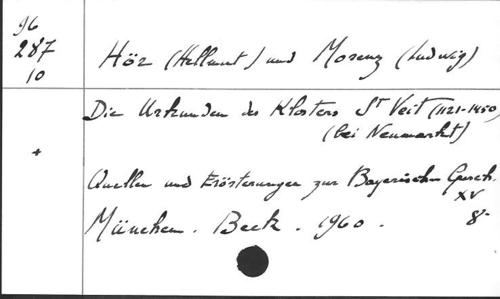 96
287
10
Hör (Hellmut) und Morenz (Ludwig)
Die Urkunden des Klosters St Veit (1121-1450)
(bei Neumarkt)
+
Quellen und Erörterungen zur Bayerischen Gesch.
XV
München. Beck. 1960. 8-